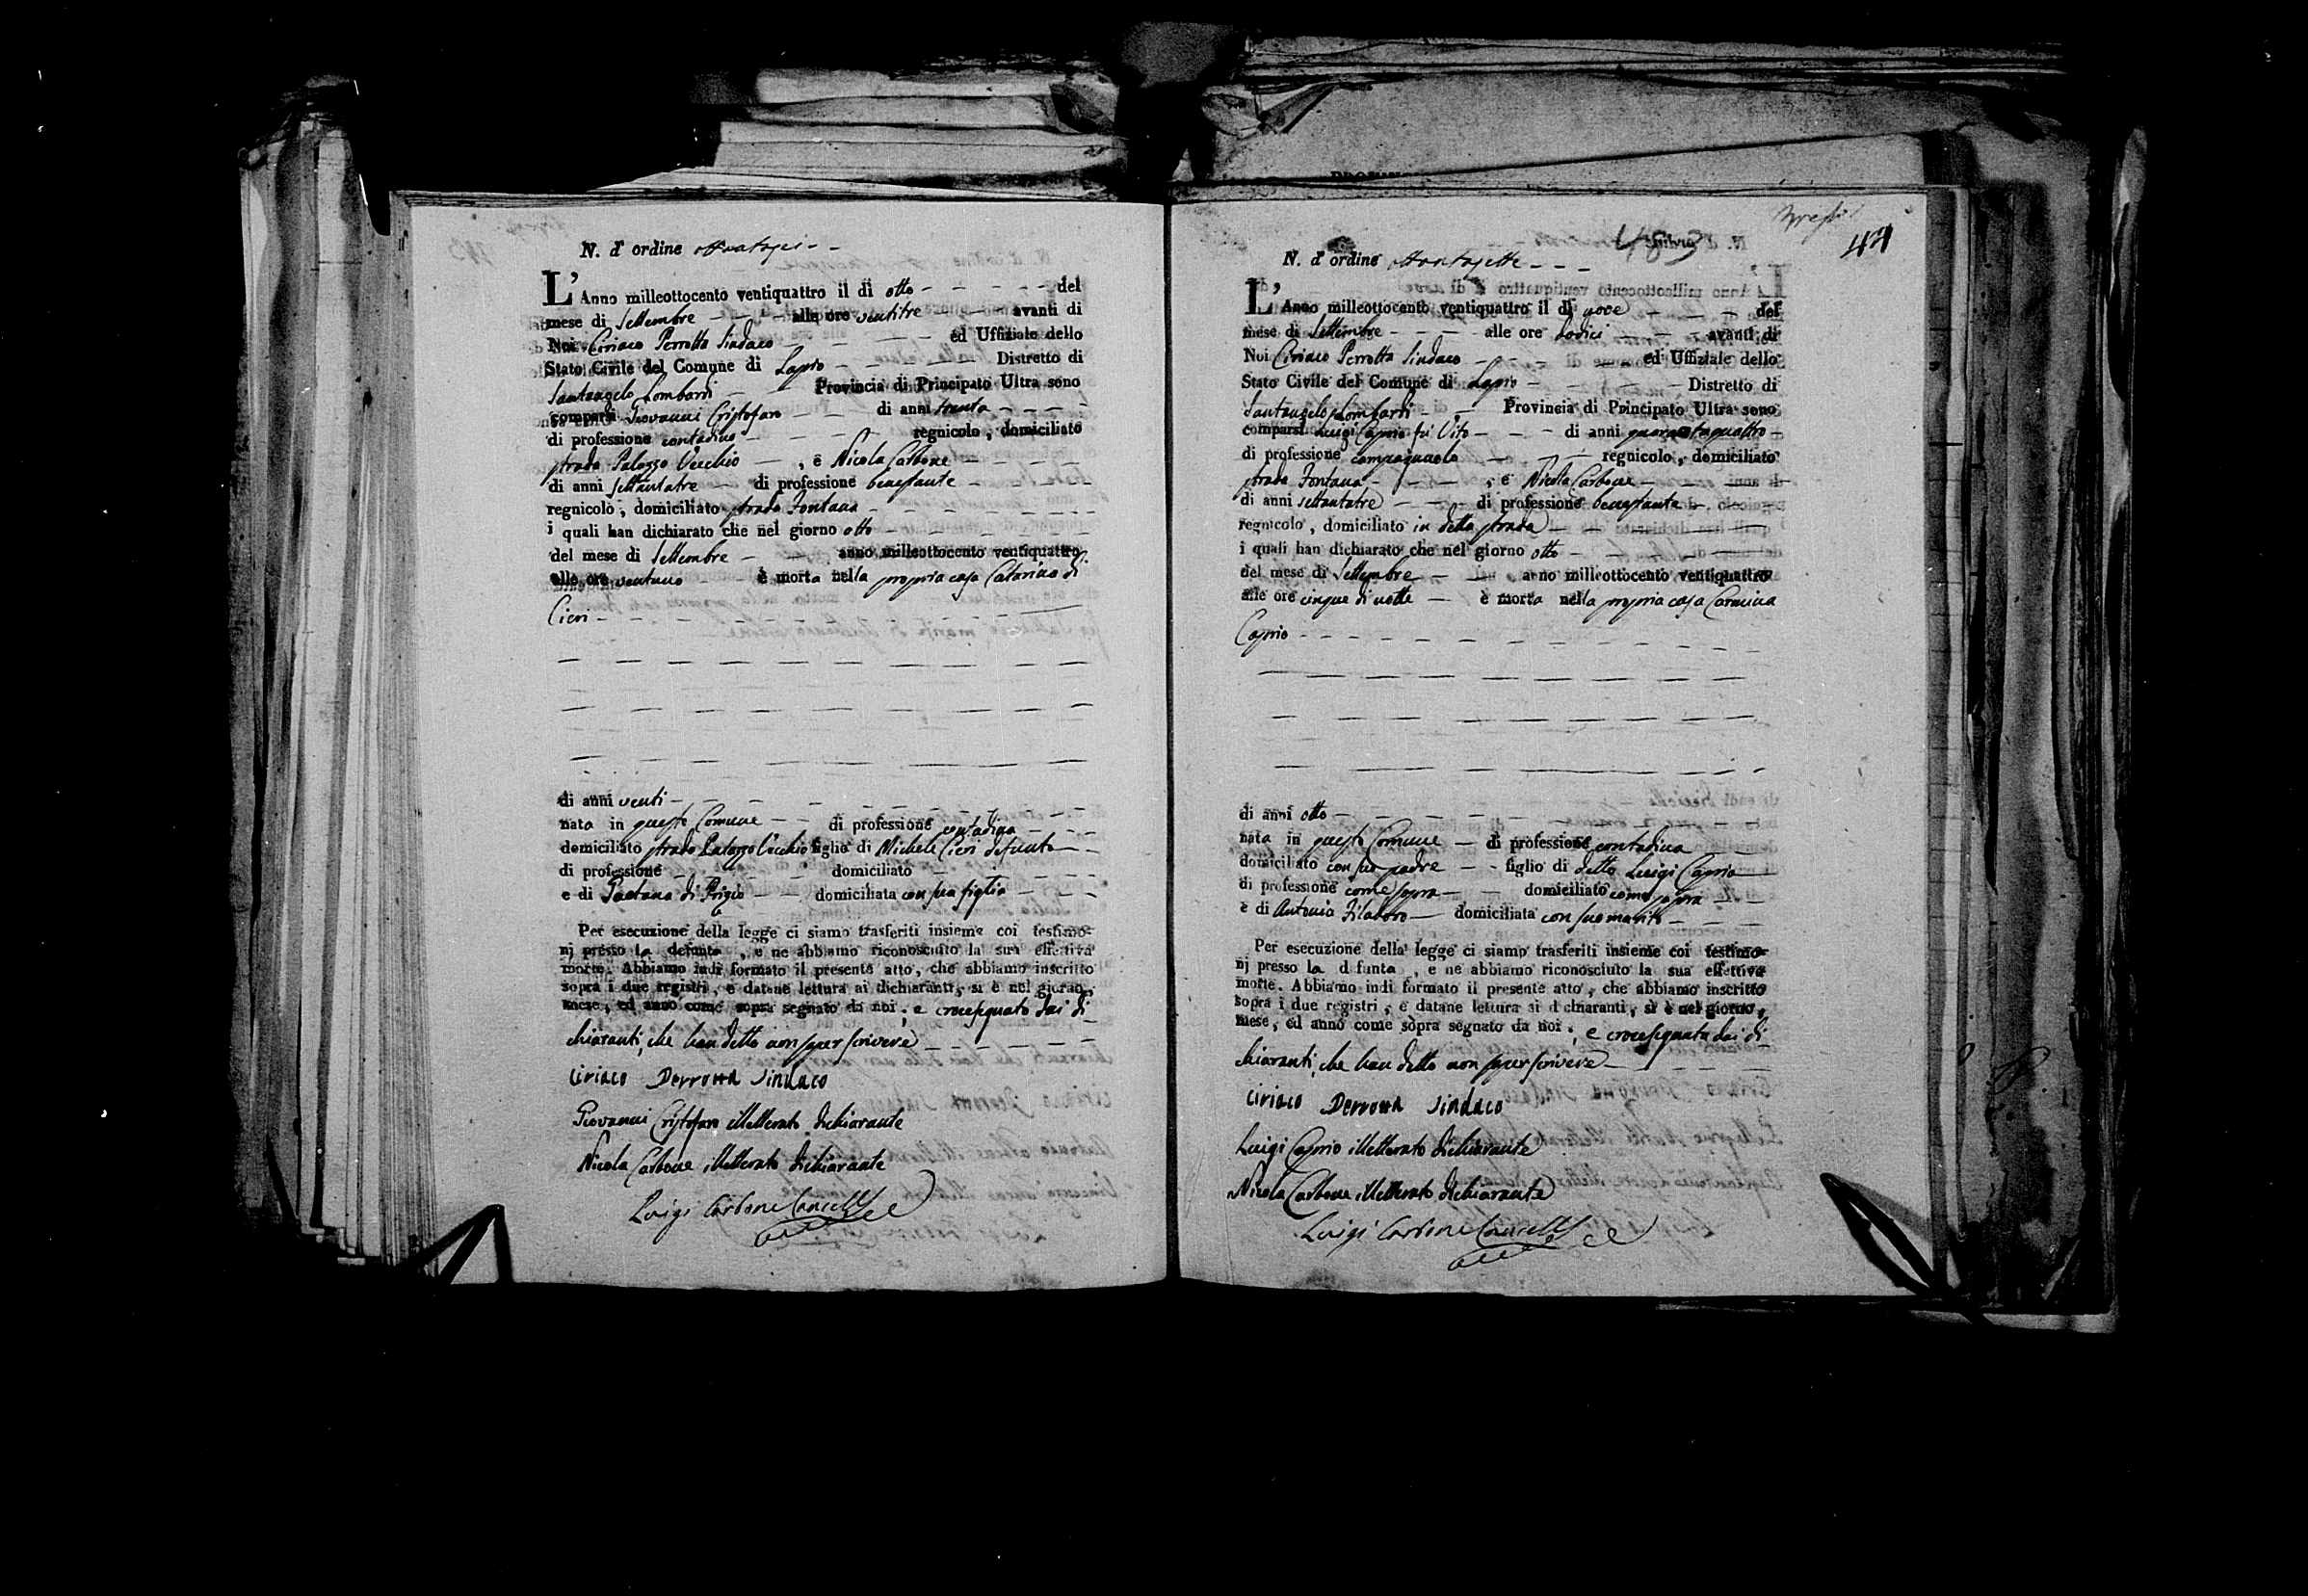 N. d' ordine ottantasei
L' Anno milleottocento ventiquattro il dì otto del
mese di Settembre alle ore ventitre avanti di
Noi Ciriaco Perrotta Sindaco ed Uffiziale dello
Stato Civile del Comune di Lapio Distretto di
Santangelo Lombardi Provincia di Principato Ultra sono
comparsi Giovanni Cristofaro di anni trenta
di professione contadino regnicolo, domiciliato
strada Palazzo Vecchio, e Nicola Carbone
di anni settantatre di professione benestante
regnicolo, domiciliato strada Fontana
i quali han dichiarato che nel giorno otto
del mese di Settembre anno milleottocento ventiquattro
alle ore ventuno è morta nella propria casa Catarina di
Cieri
di anni venti
nata in questo Comune di professione contadina
domiciliato strada Palazzo Vecchio figlio di Michele Cieri defunto
di professione domiciliato
e di Gaetana di domiciliata con sua figlia
Per esecuzione della legge ci siamo trasferiti insieme coi testimo-
nj presso la defunta, e ne abbiamo riconosciuto la sua effettiva
morte. Abbiamo indi formato il presente atto, che abbiamo inscritto
sopra i due registri, e datane lettura ai dichiaranti, si è nel giorno,
mese, ed anno come sopra segnato da noi, e crocesegnato dai di
chiaranti, che han detto non saper scrivere
Ciriaco Perrotta Sindaco
Giovanni Cristofaro illetterato dichiarante
Nicola Carbone illetterato dichiarante
Luigi Carbone Cancell
483
44
N. d' ordine ottantasette
L' Anno milleottocento ventiquattro il dì nove del
mese di Settembre alle ore dodici avanti di
Noi Ciriaco Perrotta Sindaco ed Uffiziale dello
Stato Civile del Comune di Lapio Distretto di
Santangelo Lombardi Provincia di Principato Ultra sono
comparsi Luigi Caprio fu Vito di anni quarantaquattro
di professione campagnuolo regnicolo, domiciliato
strada Fontana, e Nicola Carbone
di anni settantatre di professione benestante
regnicolo, domiciliato in detta strada
i quali han dichiarato che nel giorno otto
del mese di Settembre anno milleottocento ventiquattro
alle ore cinque di notte è morta nella propria casa Carmina
Caprio
di anni otto
nata in questo Comune di professione contadina
domiciliato con suo padre figlio di detto Luigi Caprio
di professione come sopra domiciliato come sopra
e di Antonia Filadoro domiciliata con suo marito
Per esecuzione della legge ci siamo trasferiti insieme coi testimo-
nj presso la d funta, e ne abbiamo riconosciuto la sua effettiva
morte. Abbiamo indi formato il presente atto, che abbiamo inscritto
sopra i due registri, e datane lettura ai d chiaranti, si è nel giorno,
mese, ed anno come sopra segnato da noi, e crocesegnata dai di
chiaranti, che han detto non saper scrivere
Ciriaco Perrotta Sindaco
Luigi Caprio illetterato dichiarante
Nicola Carbone illetterato dichiarante
Luigi Carbone Cancell